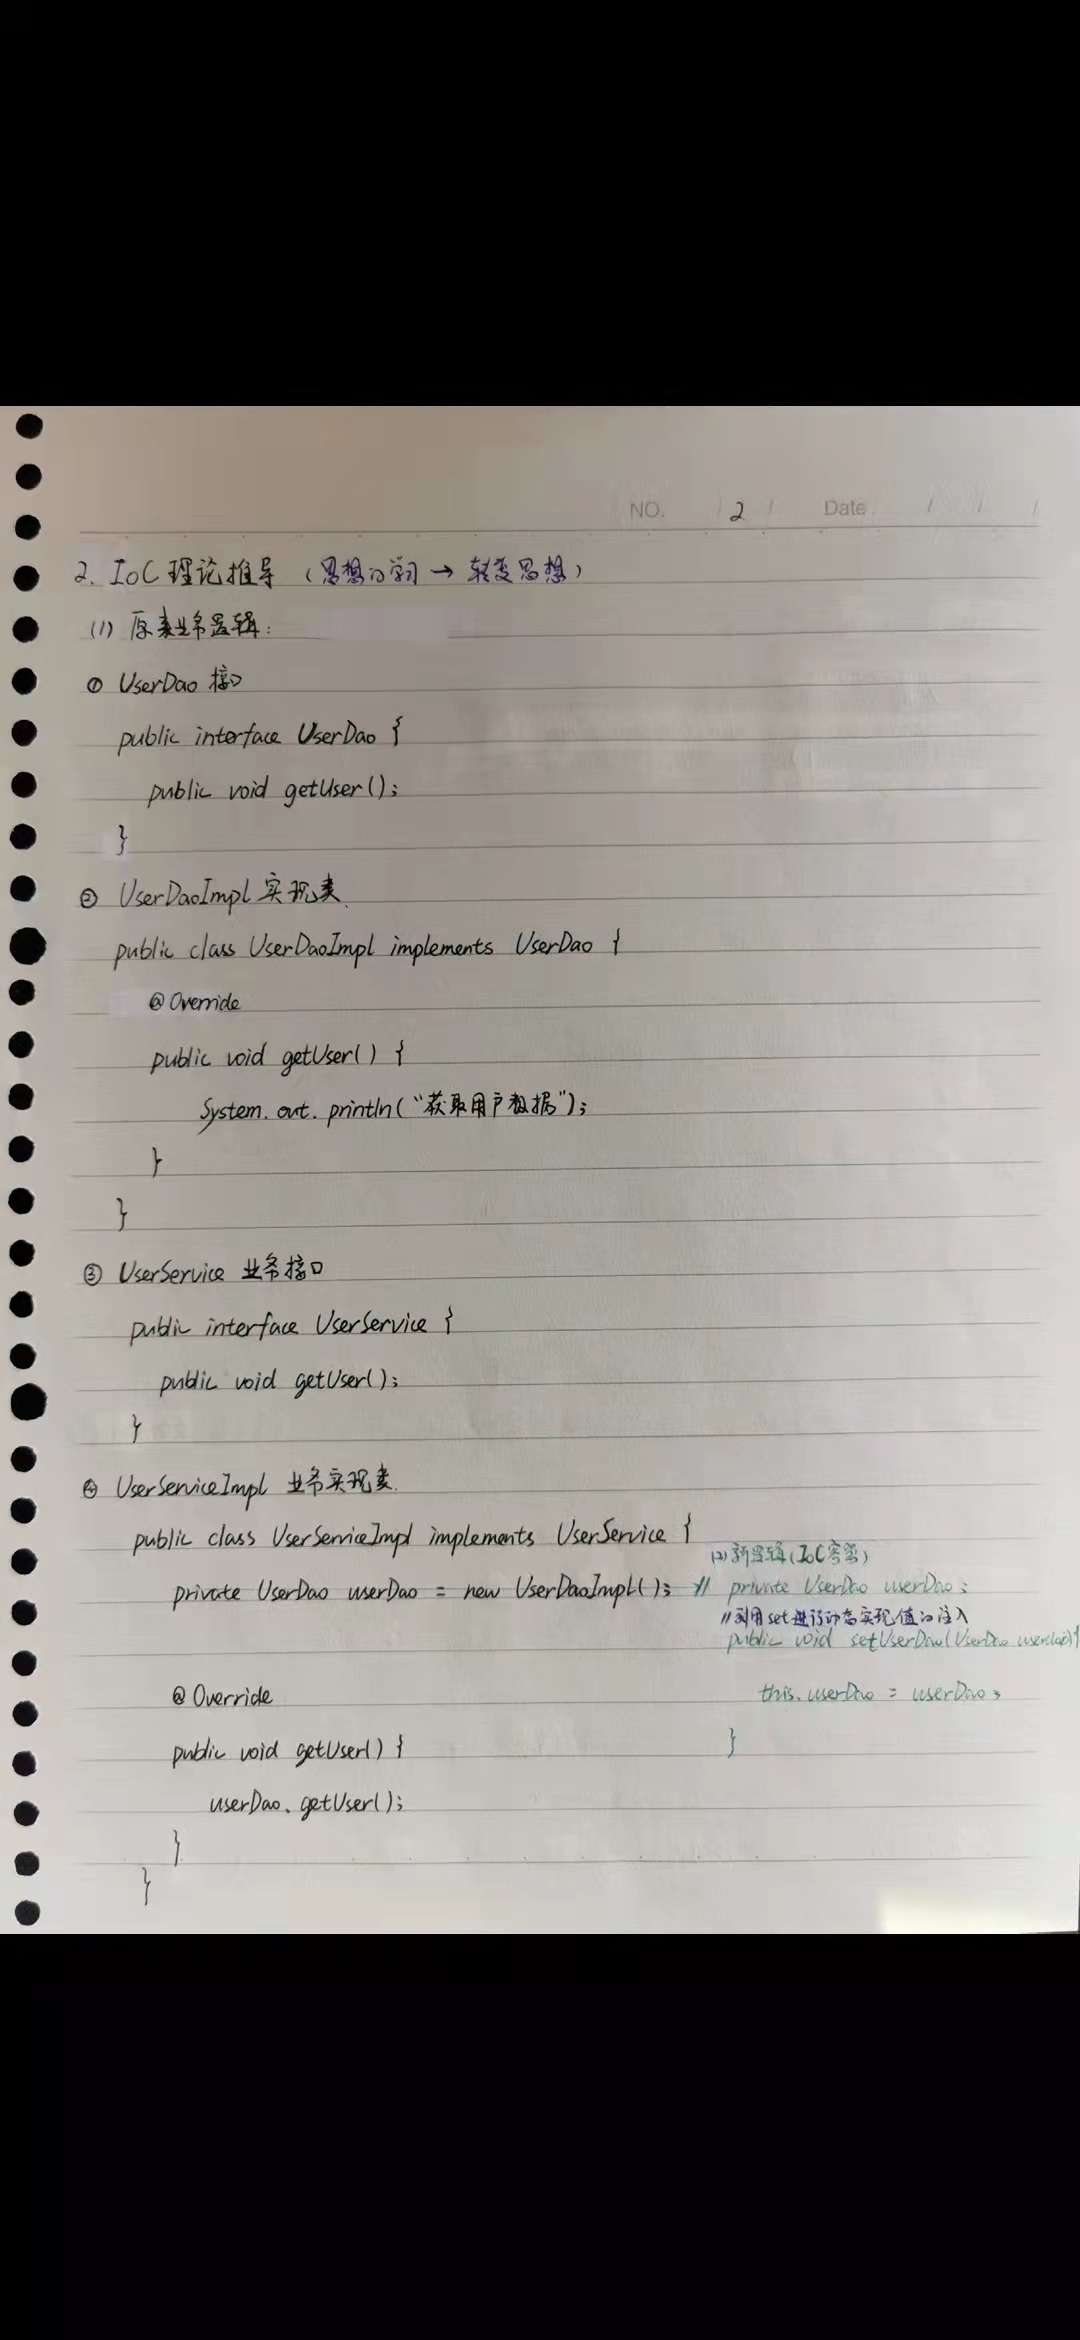 NO. 2 Date / /
2. IoC 理论推导 (思想的学习 → 转变思想)
(1) 原来业务逻辑:
① UserDao 接口
public interface UserDao {
public void getUser();
}
② UserDaoImpl 实现类.
public class UserDaoImpl implements UserDao {
@Override
public void getUser() {
System.out.println("获取用户数据");
}
}
③ UserService 业务接口
public interface UserService {
public void getUser();
}
④ UserServiceImpl 业务实现类.
public class UserServiceImpl implements UserService {
(2) 新逻辑 (IoC容器)
private UserDao userDao = new UserDaoImpl(); // private UserDao userDao;
// 利用set进行动态实现值的注入
public void setUserDao(UserDao userDao){
@Override this.userDao = userDao;
public void getUser() { }
userDao.getUser();
}
}